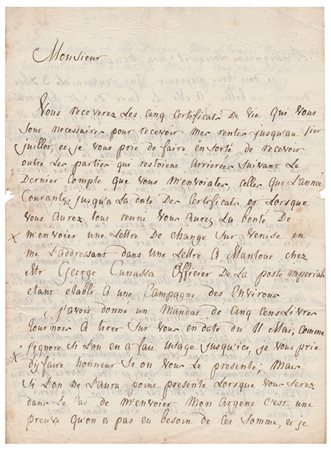 Monsieur
Vous receverez Les Cinq Certificats De Vie qui Vous
Sont necessaires pour recevoir mes rentes jusquau 1ier
juillet, et je vous prie de faire en sorte de recevoir
outre Les parties qui restoient arrierées Suivant Le
Dernier Compte que Vous m'envoiates, Celles que L'année
Courante, jusqu'a La date Des Certificats et Lorsque
Vous aurez tout reuni Vous aurez La bonté De
m'envoier une Lettre De Change Sur Venise en
me L'addressant dans une Lettre A Mantoue chez
Mr George Officier De La poste imperiale
etant etabli A une Campagne des Environs
J'avois donné un Mandat de Cinq Cens Livres
Tournois A tirer Sur Vous en date du 11 Mai, Comme
j'ignore Si Lon en a fait usage jusqu'ici, je Vous prie
d'y faire honneur Si on Vous Le presente, Mais
Si Lon ne L'aura point presenté Lorsque Vous Serez
dans Le Cas de m'envoier Mon Argent C'est une
preuve qu'on a pas eu besoin de Cette Somme, et je